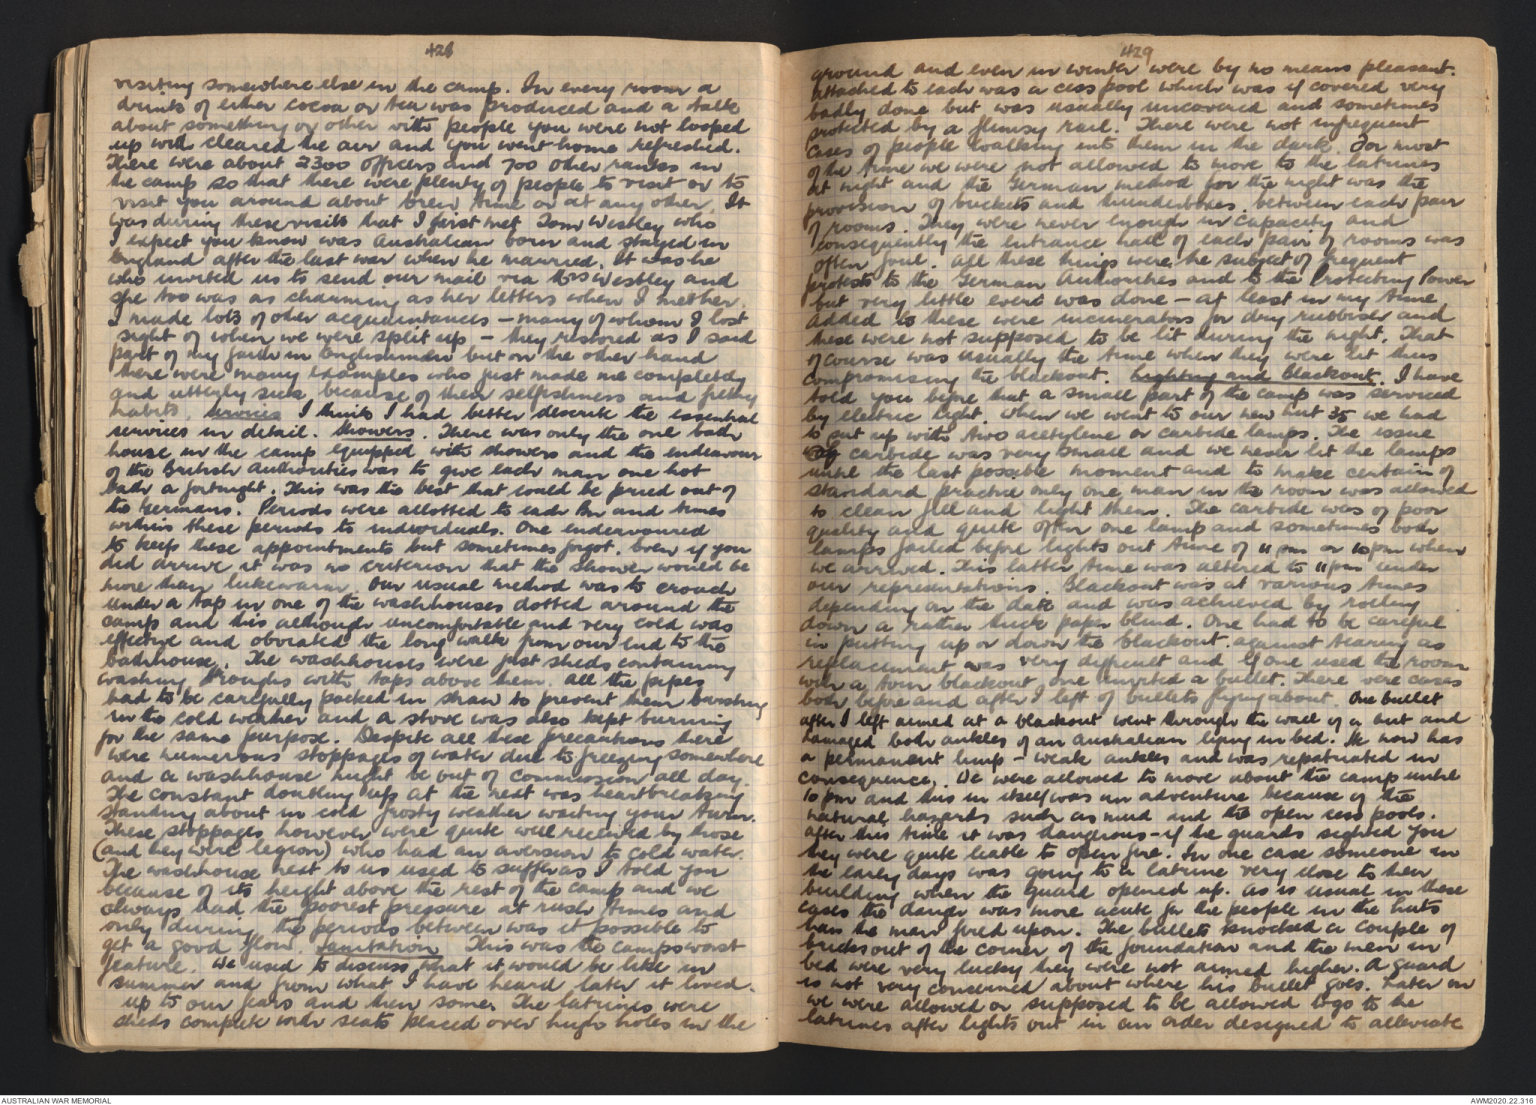 428
visiting somewhere else in the camp. In every room a
drink of either cocoa or tea was produced and a talk
about something or other with people you were not looped
up with cleared the air and you went home refreshed.
There were about 2300 officers and 700 other ranks in
the camp so that there were plenty of people to visit or to
visit you around about brew time or at any other. It
was during these visits that I first met Tom Westley who
I expect you know was Australian born and stayed in
England after the last war when he married. It was he
who invited us to send our mail via Mrs Westley and
she too was as charming as her letters when I met her.
I made lots of other acquaintances - many of whom I lost
sight of when we were split up - they restored as I said
part of my faith in Englishmen but on the other hand
there were many examples who just made me completely
and utterly sick because of their selfishness and filthy
habits. Services I think I had better describe the essential
services in detail. Showers. There was only the one bath
house in the camp equipped with showers and the endeavour
of the British authorities was to give each man one hot
bath a fortnight. This was the best that could be pried out of
the Germans. Periods were allotted to each Bn and times
within these periods to individuals. One endeavoured
to keep these appointments but sometimes forgot. Even if you
did arrive it was no criterion that the shower would be
more than lukewarm. Our usual method was to crouch
under a tap in one of the washhouses dotted around the
camp and this although uncomfortable and very cold was
effective and obviated the long walk from our end to the
bathhouse. The washhouses were just sheds containing
washing troughs with taps above them. All the pipes
had to be carefully packed in straw to prevent them bursting
in the cold weather and a stove was also kept burning
for the same purpose. Despite all these precautions there
were numerous stoppages of water due to freezing somewhere
and a washhouse might be out of commission all day.
The constant doubling up at the rest was heartbreaking
standing about in cold frosty weather waiting your turn.
These stoppages however were quite well received by those
(and they were legion) who had an aversion to cold water.
The washhouse next to us used to suffer as I told you
because of its height above the rest of the camp and we
always had the poorest pressure at rush times and
only during the periods between was it possible to
get a good flow. Sanitation This was the camps worst
feature. We used to discuss what it would be like in
summer and from what I have heard later it lived
up to our fears and then some. The latrines were
sheds complete with seats placed over huge holes in the
429
ground and even in winter were by no means pleasant.
Attached to each was a cess pool which was if covered very
badly done but was usually uncovered and sometimes
protected by a flimsy rail. There were not infrequent
cases of people walking into them in the dark. For most
of the time we were not allowed to move to the latrines
at night and the German method for the night was the
provision of buckets and thunderboxes between each pair
of rooms. They were never enough in capacity and
consequently the entrance hall of each pair of rooms was
often foul. All these things were the subject of frequent
protests to the German Authorities and to the Protecting Power
but very little ever was done - at least in my time.
Added to these were incinerators for dry rubbish and
these were not supposed to be lit during the night. That
of course was usually the time when they were lit thus
compromising the blackout. Lighting and Blackout. I have
told you before that a small part of the camp was serviced
by electric light. When we went to our new hut 35 we had
to put up with two acetylene or carbide lamps. The issue
of carbide was very small and we never lit the lamps
until the last possible moment and to make certain of
standard practice only one man in the room was allowed
to clean fill and light them. The carbide was of poor
quality and quite often one lamp and sometimes both
lamps failed before lights out time of 11 pm or 10 pm when
we arrived. This latter time was altered to 11 pm under
our representations. Blackout was at various times
depending on the date and was achieved by rolling
down a rather thick paper blind. One had to be careful
in putting up or down the blackout against tearing as
replacement was very difficult and if one used the room
with a torn blackout one invited a bullet. There were cases
both before and after I left of bullets flying about. One bullet
after I left aimed at a blackout went through the wall of a hut and
damaged both ankles of an Australian lying in bed. He now has
a permanent limp - weak ankles and was repatriated in
consequence. We were allowed to move about the camp until
10 pm and this in itself was an adventure because of the
natural hazards such as mud and the open cess pools.
After this time it was dangerous - if the guards sighted you
they were quite liable to open fire. In one case someone in
the early days was going to a latrine very close to their
building when the guard opened up. As is usual in these
cases the danger was more acute for the people in the huts
than the man fired upon. The bullets knocked a couple of
bricks out of the corner of the foundation and the men in
bed were very lucky they were not aimed higher. A guard
is not very concerned about where his bullet goes. Later on
we were allowed or supposed to be allowed to go to the
latrines after lights out in an order designed to alleviate
AUSTRALIAN WAR MEMORIAL
AWM2020.22.316